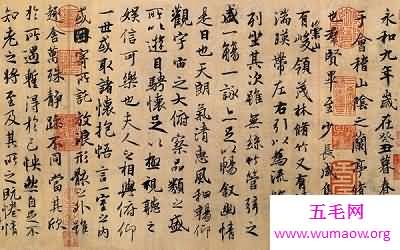 永和九年歲在癸丑暮春
于會稽山陰之蘭亭脩
也羣賢畢至少長咸集
有崇山峻領茂林脩竹又有
湍暎帶左右引以為流
列坐其次雖無絲竹管弦之
盛一觴一詠亦足以暢叙幽情
是日也天朗氣清惠風和暢仰
觀宇宙之大俯察品類之盛
所以遊目騁懷足以極視聽之
娛信可樂也夫人之相與俯仰
一世或取諸懷抱悟言一室之內
或因寄所託放浪形骸之外雖
趣舍萬殊靜躁不同當其欣
於所遇蹔得於己怏然自足不
知老之將至及其所之既惓情
五毛网
www.wumaow.org